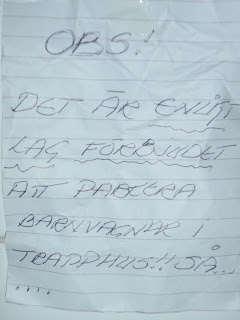 OBS!
DET ÄR ENLIGT
LAG FÖRBJUDET
ATT PARKERA
BARNVAGNAR I
TRAPPHUS!! SÅ...
....